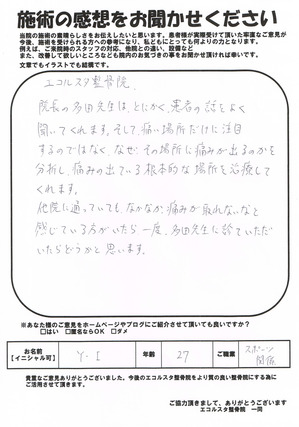 施術の感想をお聞かせください
当院の施術の素晴らしさをお伝えしたいと思います。患者様が実際受けて頂いた率直なご意見が
今後、施術を受けられる方への参考になり、私どもにとっても何よりの力となります。
例えば、ご来院時のスタッフの対応、他院との違い、設備など
また、改善して欲しいところなども院内のお気づきの事をお聞かせ頂ければ幸いです。
文章でもイラストでも結構です。
エコルスタ整骨院
院長の多田先生は、とにかく患者の話をよく
聞いてくれます。そして、痛い場所だけに注目
するのではなく、なぜその場所に痛みが出るのかを
分析し、痛みの出ている根本的な場所を治療して
くれます。
他院に通っていても、なかなか痛みが取れないなと
感じている方がいたら一度、多田先生に診ていただ
いたらどうかと思います。
※あなた様のご意見をホームページやブログにご紹介させて頂いても良いですか？
□はい □匿名ならOK □ダメ
お名前
【イニシャル可】
Y・I
年齢
27
ご職業
スポーツ
関係
貴重なご意見ありがとうございました。今後のエコルスタ整骨院をより質の良い整骨院にする為に
ご活用させて頂きます。
ご協力頂きまして、ありがとうございます
エコルスタ整骨院 一同